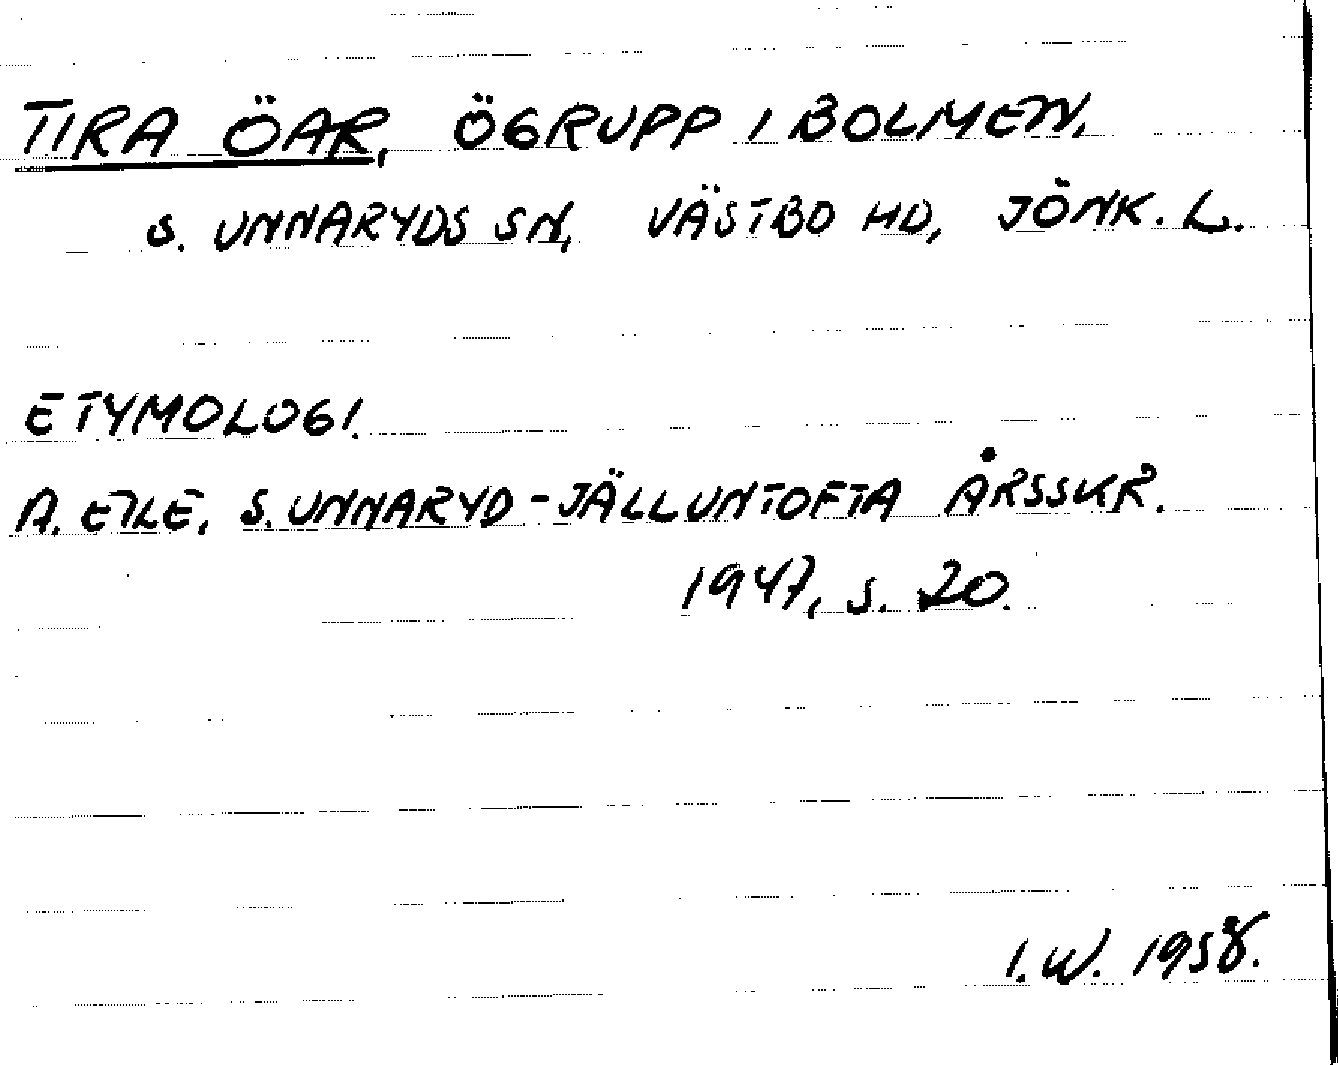 TIRA ÖAR, ÖGRUPP I BOLMEN,
S. UNNARYDS SN, VÄSTBO HD, JÖNK. L.
ETYMOLOGI.
A. ETLE, S. UNNARYD-JÄLLUNTOFTA ÅRSSKR.
1947, S. 20.
I.W. 1958.